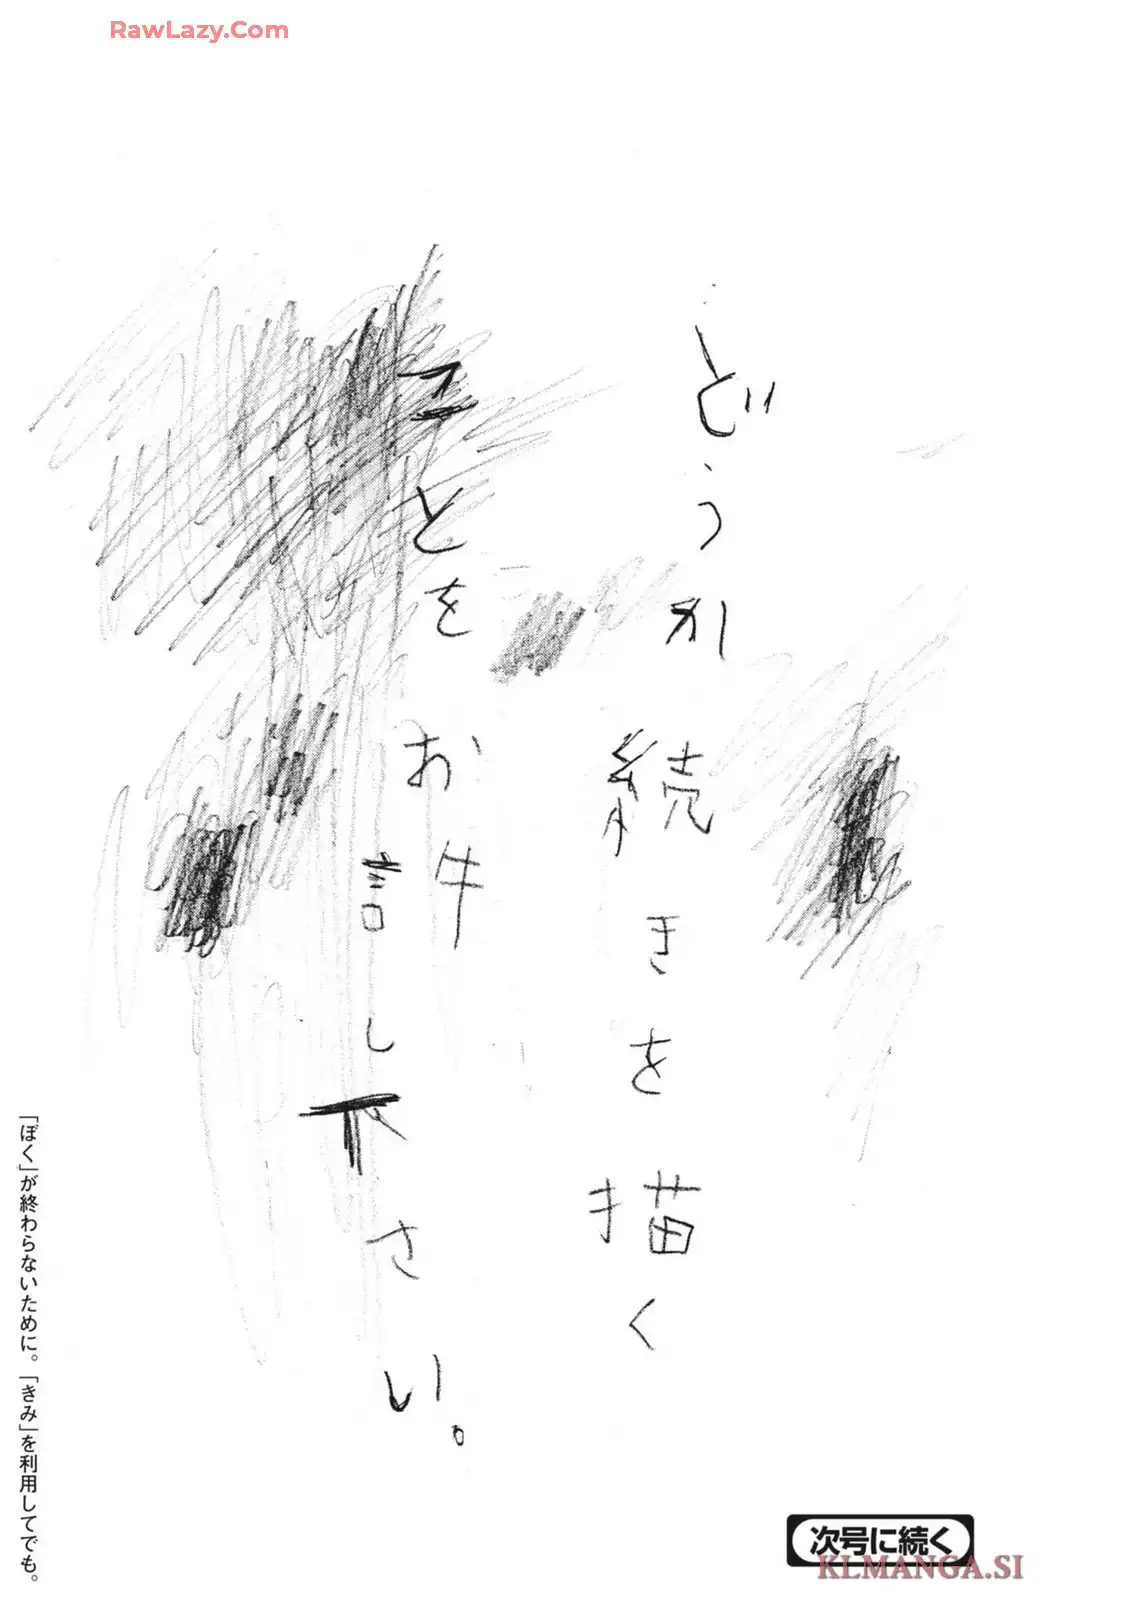 RawLazy.Com
どうか続きを描く
ことをお許し下さい。
「ぼく」が終わらないために。「きみ」を利用してでも。
次号に続く
KLMANGA.SI